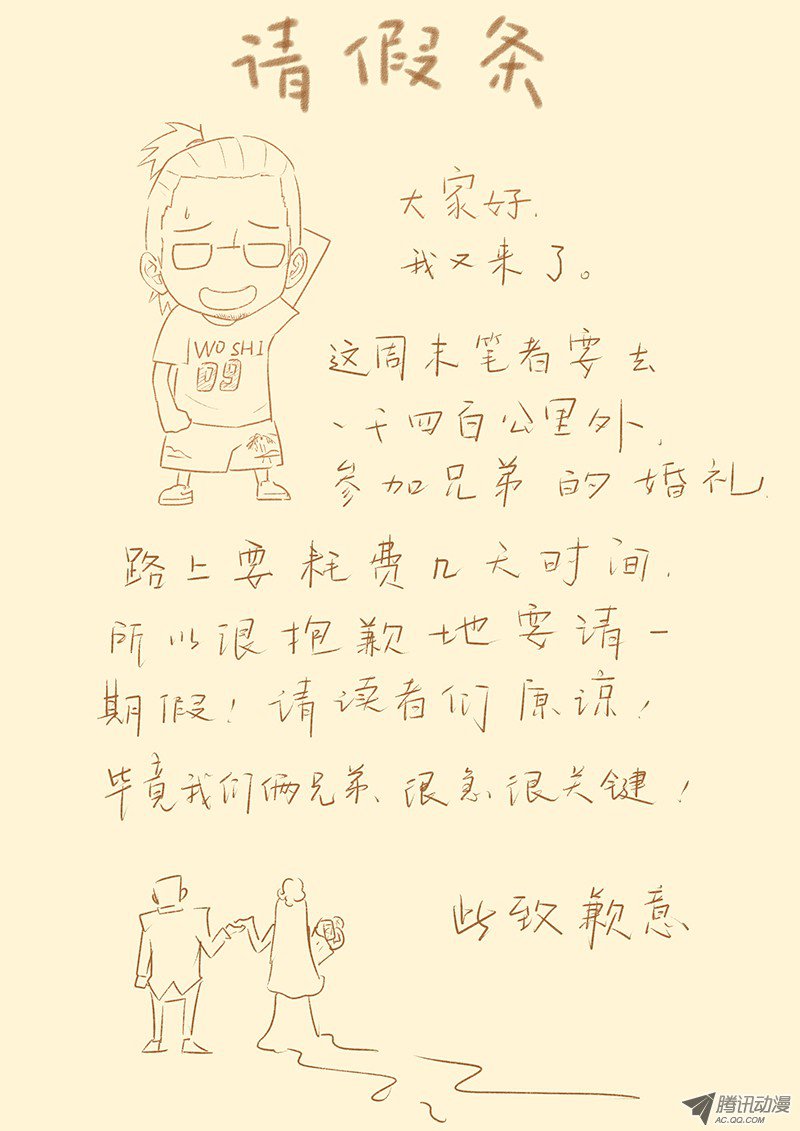 请假条
大家好.
我又来了。
WO SHI
09
这周末笔者要去
一千四百公里外,
参加兄弟的婚礼.
路上要耗费几天时间.
所以很抱歉地要请一
期假!请读者们原谅!
毕竟我们俩兄弟、很急很关键!
此致歉意
腾讯动漫
AC.QQ.COM